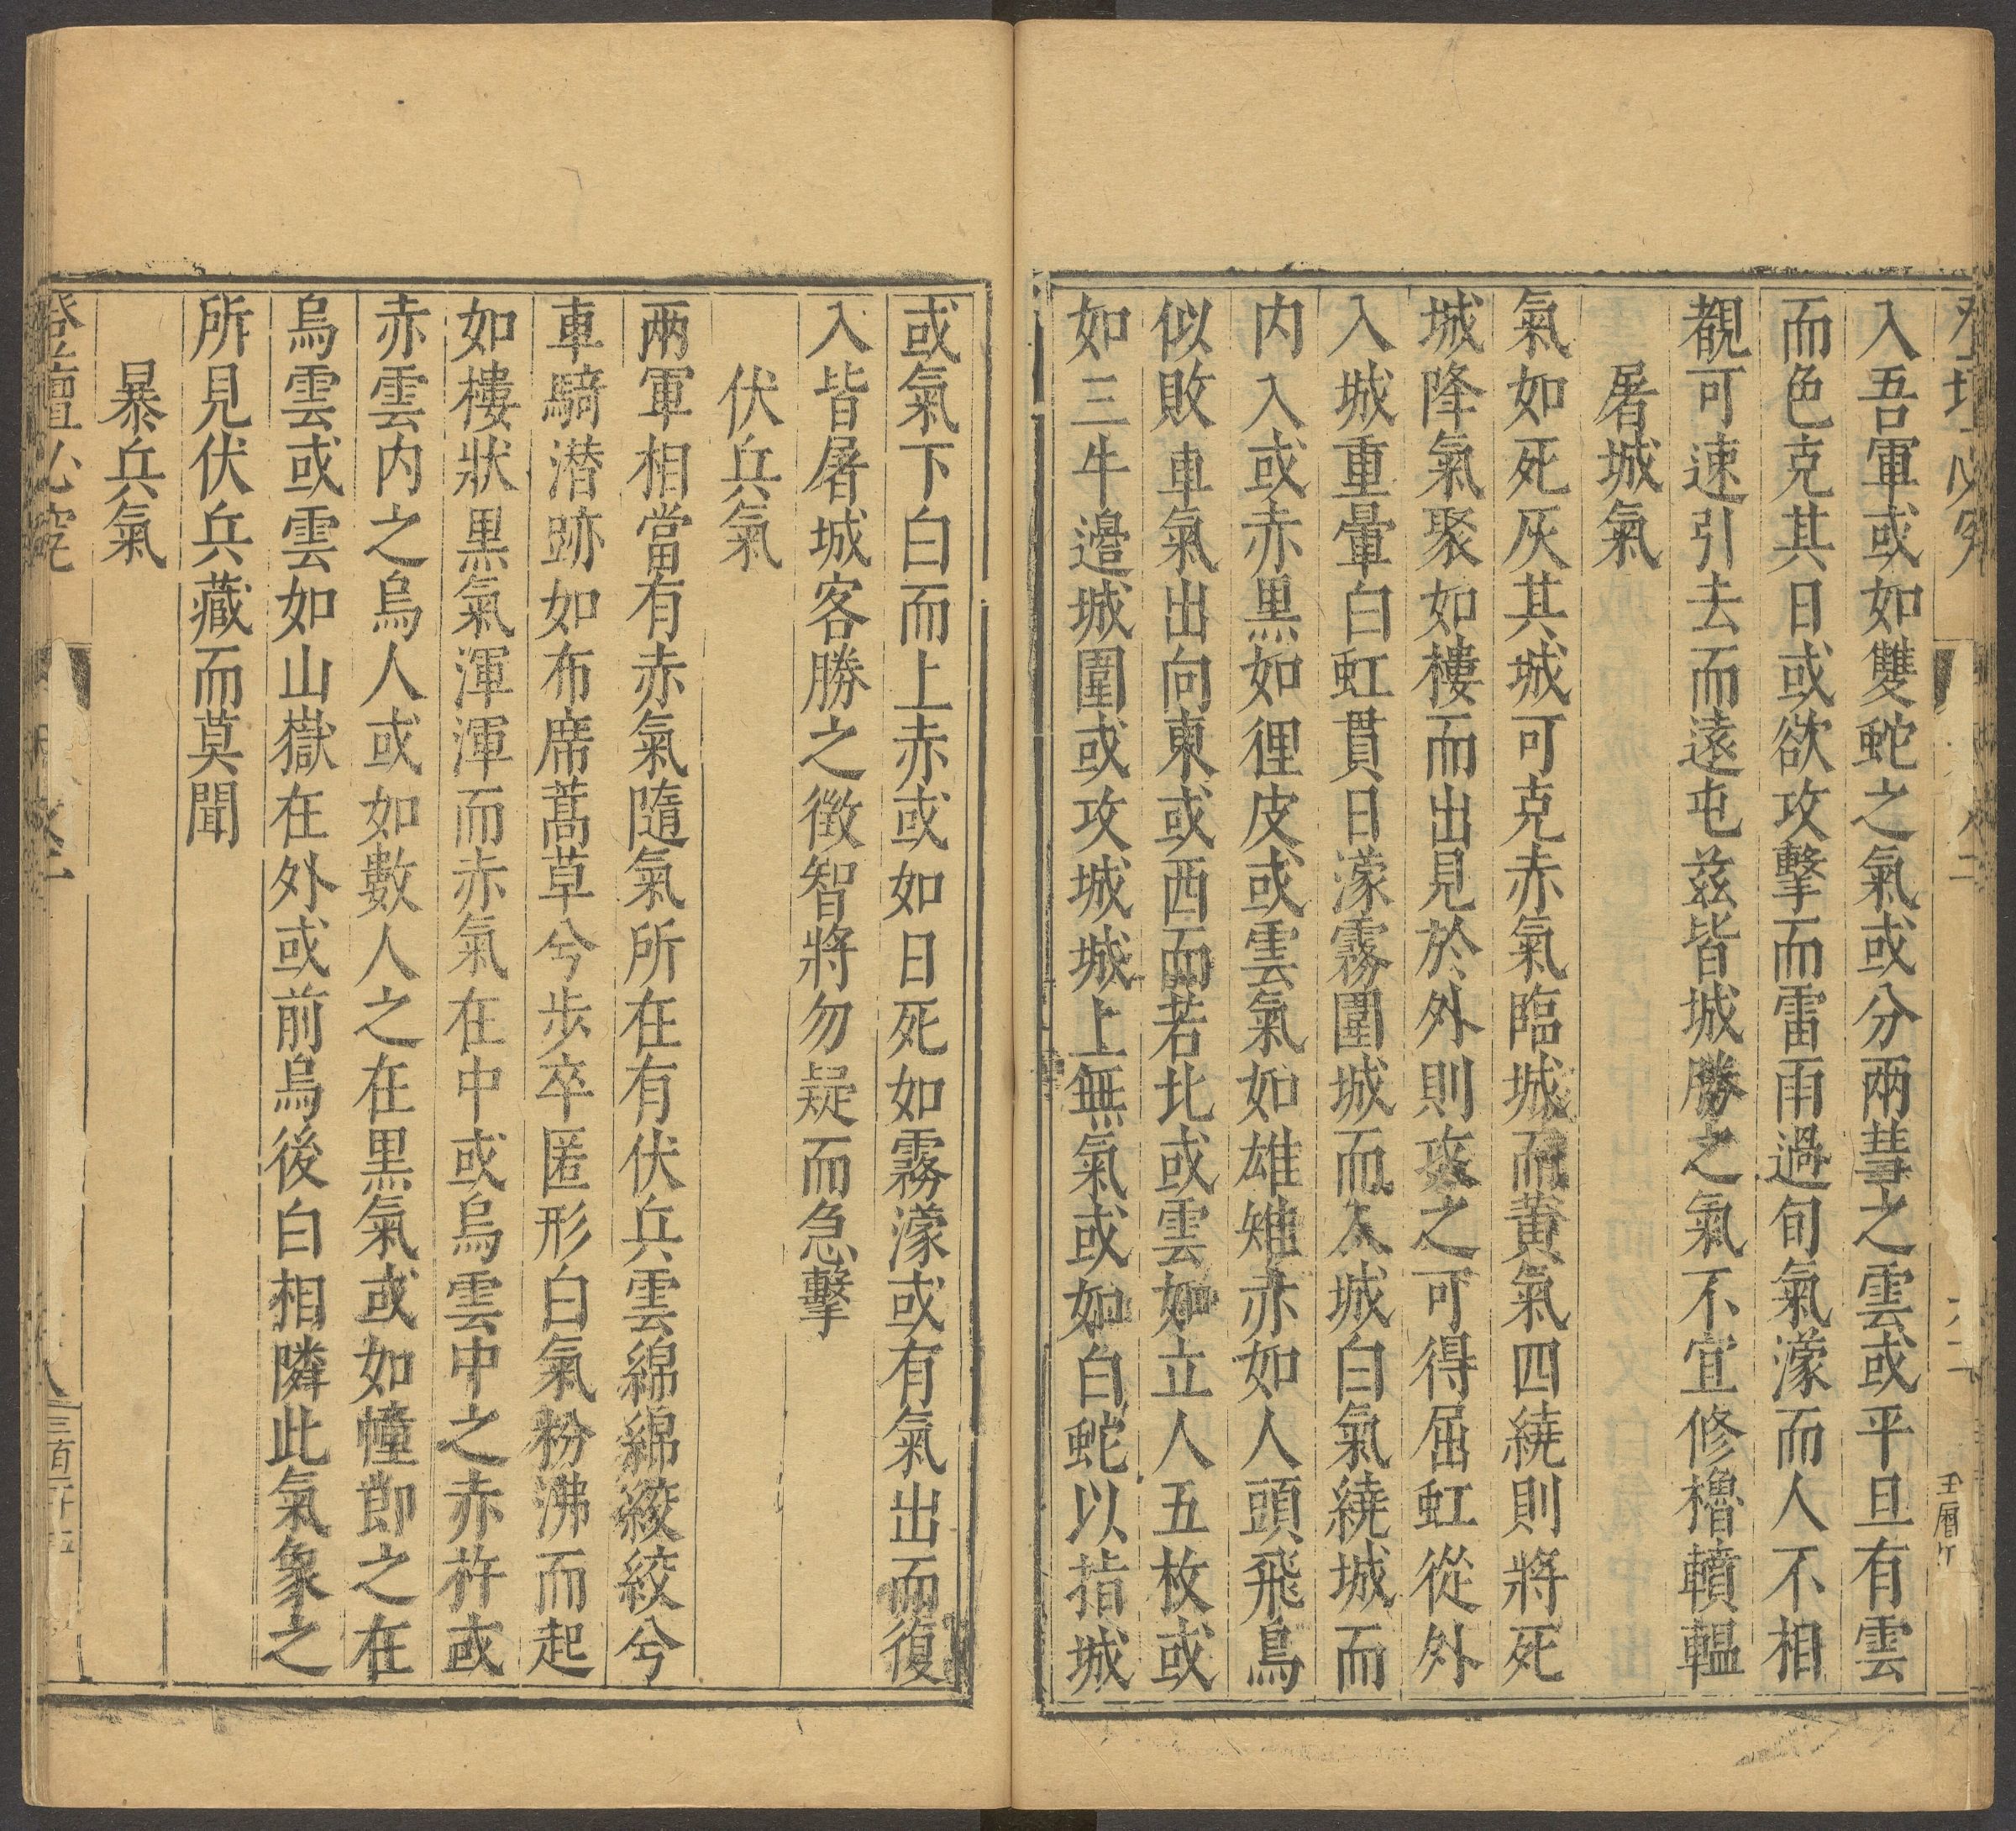 入吾軍或如雙蛇之氣或分兩彗之雲或平旦有雲
而色克其日或欲攻擊而雷雨過旬氣濛而人不相
覩可速引去而遠屯茲皆城勝之氣不宜修櫓轒轀
屠城氣
氣如死灰其城可克赤氣臨城而黃氣四繞則將死
城降氣聚如樓而出見於外則攻之可得屈虹從外
入城重暈白虹貫日濛霧圍城而入城白氣繞城而
内入或赤黑如狸皮或雲氣如雄雉赤如人頭飛鳥
似敗車氣出向東或西而若北或雲如立人五枚或
如三牛邉城圍或攻城城上無氣或如白蛇以指城
或氣下白而上赤或如日死如霧濛或有氣出而復
入皆屠城客勝之徵智將勿疑而急擊
伏兵氣
兩軍相當有赤氣隨氣所在有伏兵雲綿綿絞絞兮
車騎潛跡如布席蒿草兮步卒匿形白氣粉沸而起
如樓狀黒氣渾渾而赤氣在中或烏雲中之赤杵或
赤雲内之烏人或如數人之在黒氣或如幢節之在
烏雲或雲如山嶽在外或前烏後白相隣此氣象之
所見伏兵藏而莫聞
暴兵氣
登壇必究